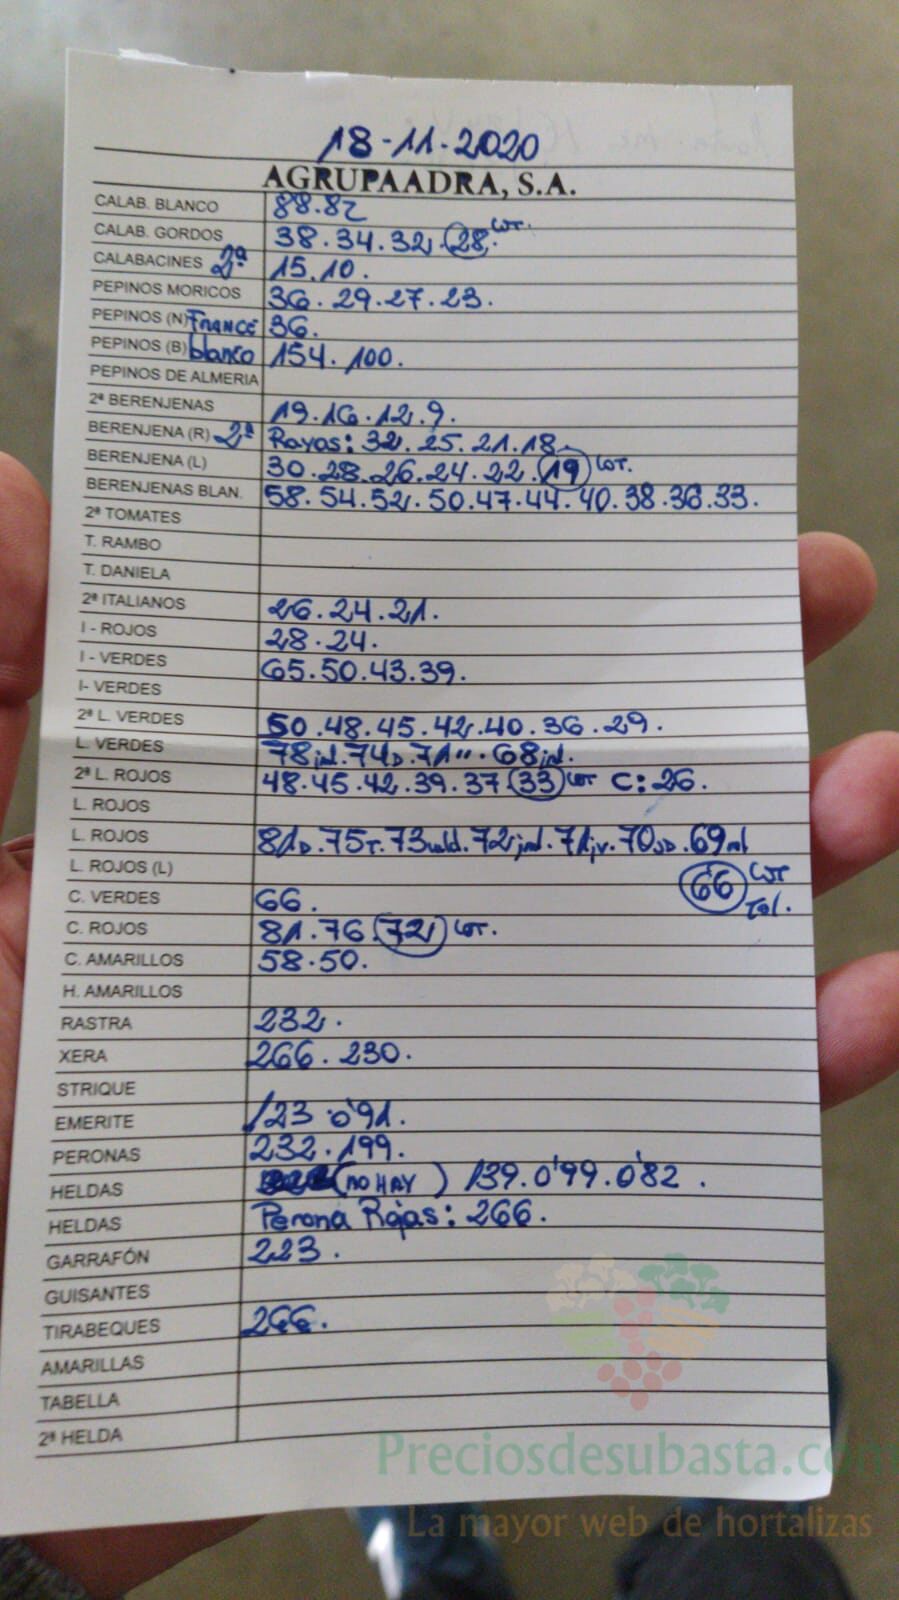 18-11-2020
AGRUPAADRA, S.A.
CALAB. BLANCO 88.82
CALAB. GORDOS 38.34.32.28. COT.
CALABACINES 2ª 15.10.
PEPINOS MORICOS 36.29.27.23.
PEPINOS (N) FRANCE 36.
PEPINOS (B) blanco 154.100.
PEPINOS DE ALMERIA
2ª BERENJENAS 19.16.12.9.
BERENJENA (R) 2ª Rayas: 32.25.21.18.
BERENJENA (L) 30.28.26.24.22.19 COT.
BERENJENAS BLAN. 58.54.52.50.47.44.40.38.36.33.
2ª TOMATES
T. RAMBO
T. DANIELA
2ª ITALIANOS 26.24.21.
I - ROJOS 28.24.
I - VERDES 65.50.43.39.
I- VERDES
2ª L. VERDES 50.48.45.42.40.36.29.
L. VERDES 78 ind. 74D. 71 ". 68 ind.
2ª L. ROJOS 48.45.42.39.37.33 COT C: 26.
L. ROJOS
L. ROJOS 81D. 75T. 73 . 72 . 71jv. 70 . 69
L. ROJOS (L) 66 COT
C. VERDES 66. Tol.
C. ROJOS 81.76.72 COT.
C. AMARILLOS 58.50.
H. AMARILLOS
RASTRA 232.
XERA 266.230.
STRIQUE
EMERITE 123.0'91.
PERONAS 232.199.
HELDAS (NO HAY) 139.0'99.0'82.
HELDAS Perona Rojas: 266.
GARRAFÓN 223.
GUISANTES
TIRABEQUES 266.
AMARILLAS
TABELLA
2ª HELDA
Preciosdesubasta.com
La mayor web de hortalizas